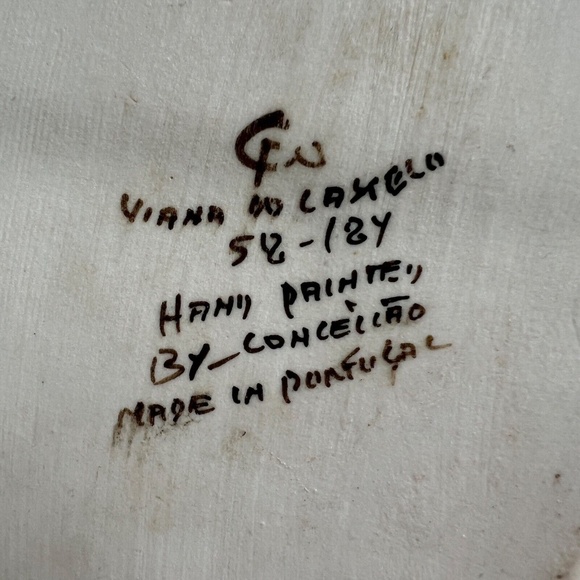 VIANA DO CASTELO
52-124
HAND PAINTED
BY-CONCEIÇÃO
MADE IN PORTUGAL